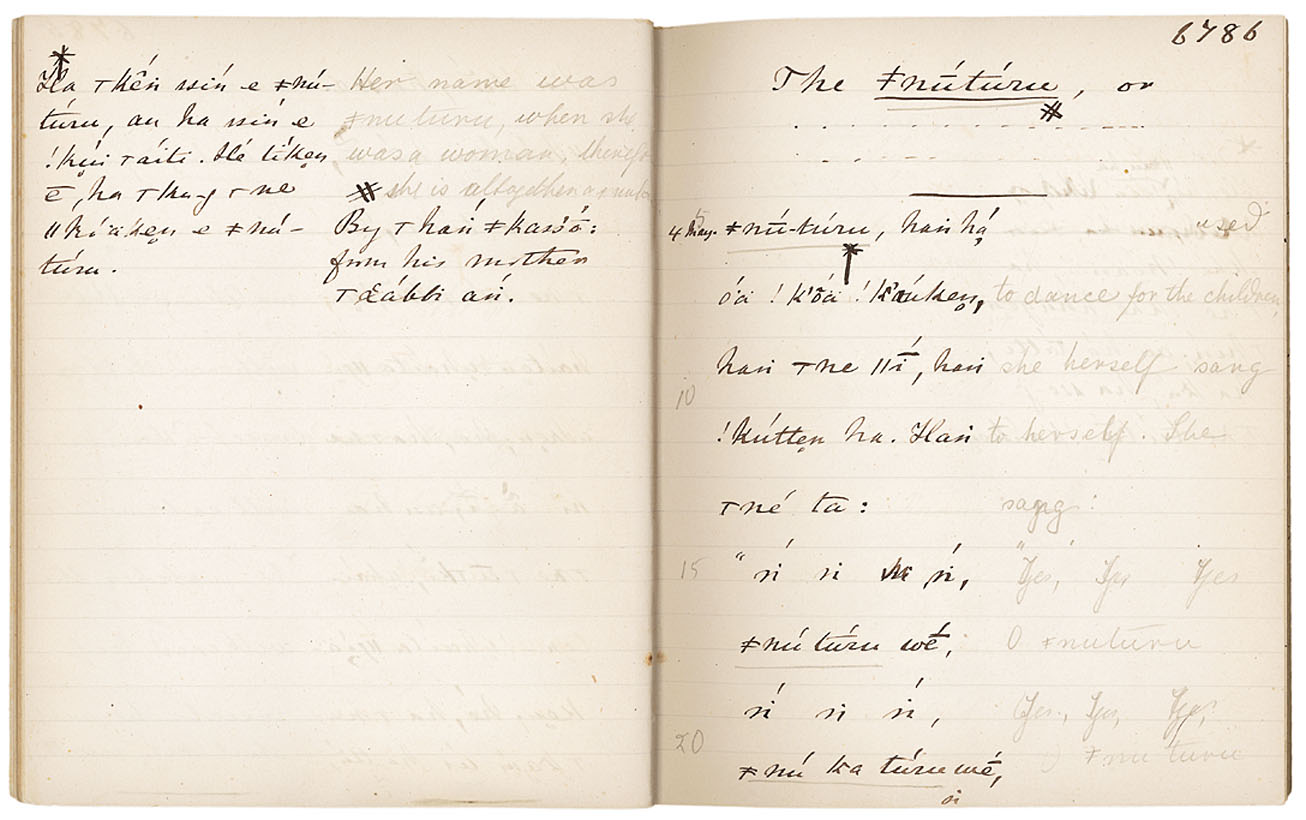 Ha ⊤kẽń ssiń e ǂnú-
túru, au ha ssiń e
!kṷi ⊤áiti. Hé tíkẹn
ē, ha ⊤ku-g ⊤ne
ǁkóäkẹn e ǂnú-
túru.
Her name was
ǂnuturu, when she
was a woman, therefo
# she is altogether a ǂnutu
By ⊤haṅ ǂkass'ō:
from his mother
⊤Xábbi aṅ.
6786
The ǂnútúru, or
4 May. ǂnú-túru, haṅ há̤ used
óä !k'õä !k'áukẹn, to dance for the children,
haṅ ⊤ne ǁṅ́, haṅ she herself sang
10
!kúttẹn ha. Haṅ to herself. She
⊤né ta: sang:
15 "ṅ́ ṅ ṅ́, "Yes, Yes Yes
ǂnú túru wé́, O ǂnuturu
ṅ́ ṅ ṅ́, Yes, Yes, Yes,
20
ǂnú ka túru wé́, O ǂnuturu